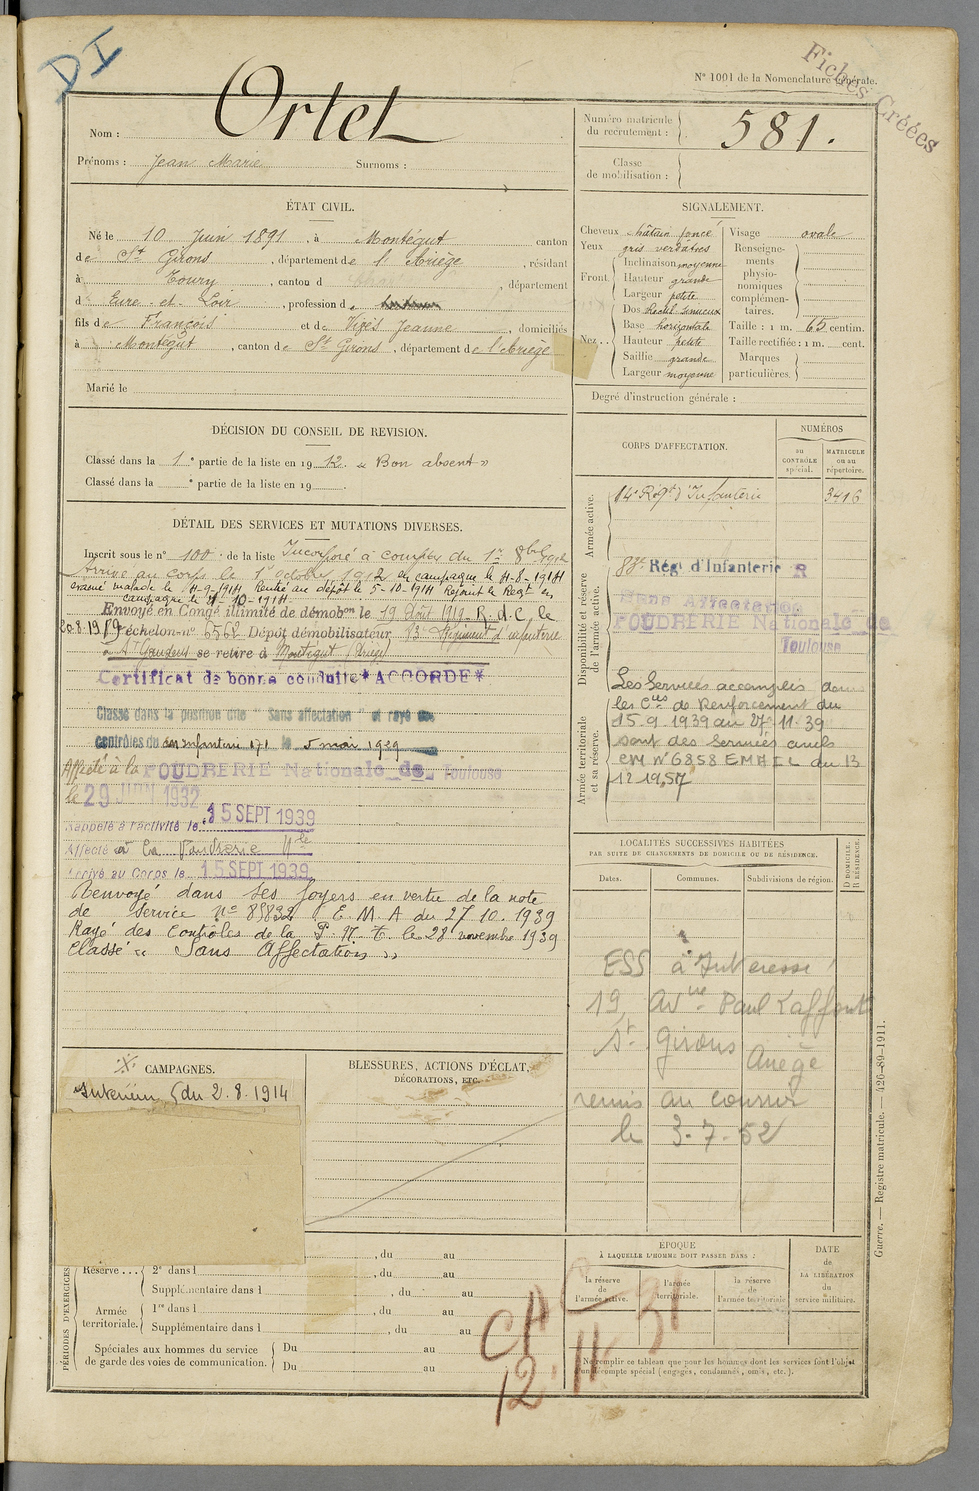 DI
Fichés Créées
N° 1001 de la Nomenclature Générale.
Nom : Ortet
Prénoms : Jean Marie Surnoms :
Numéro matricule du recrutement : 581.
Classe de mobilisation :
ÉTAT CIVIL.
Né le 10 Juin 1891, à Montégut canton
de St Girons, département de l'Ariège, résidant
à Toury, canton d département
d Eure-et-Loir, profession d
fils de François et de Vizès Jeanne, domiciliés
à Montégut, canton de St Girons, département de l'Ariège
Marié le
SIGNALEMENT.
Cheveux châtain foncé Visage ovale
Yeux gris verdâtres
Front. Inclinaison moyenne
Hauteur grande
Largeur petite
Nez.. Dos Rectil. sinueux
Base horizontale
Hauteur petite
Saillie grande
Largeur moyenne
Renseignements physionomiques complémentaires.
Taille : 1 m. 65 centim.
Taille rectifiée : 1 m. cent.
Marques particulières.
Degré d'instruction générale :
DÉCISION DU CONSEIL DE REVISION.
Classé dans la 1e partie de la liste en 1912. « Bon absent »
Classé dans la e partie de la liste en 19 .
DÉTAIL DES SERVICES ET MUTATIONS DIVERSES.
Inscrit sous le n° 100 de la liste Incorporé à compter du 1er 8bre 1912
Arrivé au corps le 1er octobre 1912 en campagne le 4-8-1914
Évacué malade le 14-9-1914 Rentré au dépôt le 5-10-1914 Rejoint le Régt en
campagne le 10-1914
Envoyé en Congé illimité de démobon le 19 Août 1919. R. d. C. le
20.8.19 échelon n° 6562 Dépôt démobilisateur 83e Régiment d'infanterie
à St Gaudens se retire à Montégut (Ariège)
Certificat de bonne conduite *ACCORDÉ*
Classé dans la position dite " Sans affectation " et rayé des
contrôles du en infanterie 171 le 5 mai 1929
Affecté à la POUDRERIE Nationale de Toulouse
le 29 JUIN 1932
Rappelé à l'activité le 15 SEPT 1939
Affecté à la Poudrerie Nle
Arrivé au Corps le 15 SEPT 1939
Renvoyé dans ses foyers en vertu de la note
de Service N° 85832 E. M. A du 27.10.1939
Rayé des Contrôles de la P. N. T. le 28 novembre 1939
Classé « Sans Affectation »
CORPS D'AFFECTATION.
NUMÉROS
au CONTRÔLE spécial.
MATRICULE ou au répertoire.
Armée active.
14e Régt d'Infanterie 3416
Disponibilité et réserve de l'armée active.
83e Régt d'Infanterie R
Sans Affectation
POUDRERIE Nationale de
Toulouse
Armée territoriale et sa réserve.
Les Services accomplis dans
les Cies de Renforcement du
15.9.1939 au 27.11.39
sont des Services
CM N° 6858 EMA du 13
12 1957
LOCALITÉS SUCCESSIVES HABITÉES
PAR SUITE DE CHANGEMENTS DE DOMICILE OU DE RÉSIDENCE.
Dates. Communes. Subdivisions de région.
D DOMICILE. R RÉSIDENCE.
ESS à Intéressé
19 Avnue Paul Laffont
St Girons Ariège
remis au courrier
le 3-7-52
CAMPAGNES.
Intérieur (du 2.8.1914
BLESSURES, ACTIONS D'ÉCLAT,
DÉCORATIONS, ETC.
PÉRIODES D'EXERCICES
, du au
Réserve... 2e dans l , du au
Supplémentaire dans l , du au
Armée territoriale. 1re dans l , du au
Supplémentaire dans l , du au
Spéciales aux hommes du service de garde des voies de communication. Du au
Du au
CAC
12.11.31
ÉPOQUE
À LAQUELLE L'HOMME DOIT PASSER DANS :
la réserve de l'armée active.
l'armée territoriale.
la réserve de l'armée territoriale
DATE de LA LIBÉRATION du service militaire.
Ne remplir ce tableau que pour les hommes dont les services font l'objet
d'un décompte spécial (engagés, condamnés, omis, etc.).
Guerre. — Registre matricule. — 426-89-1911.